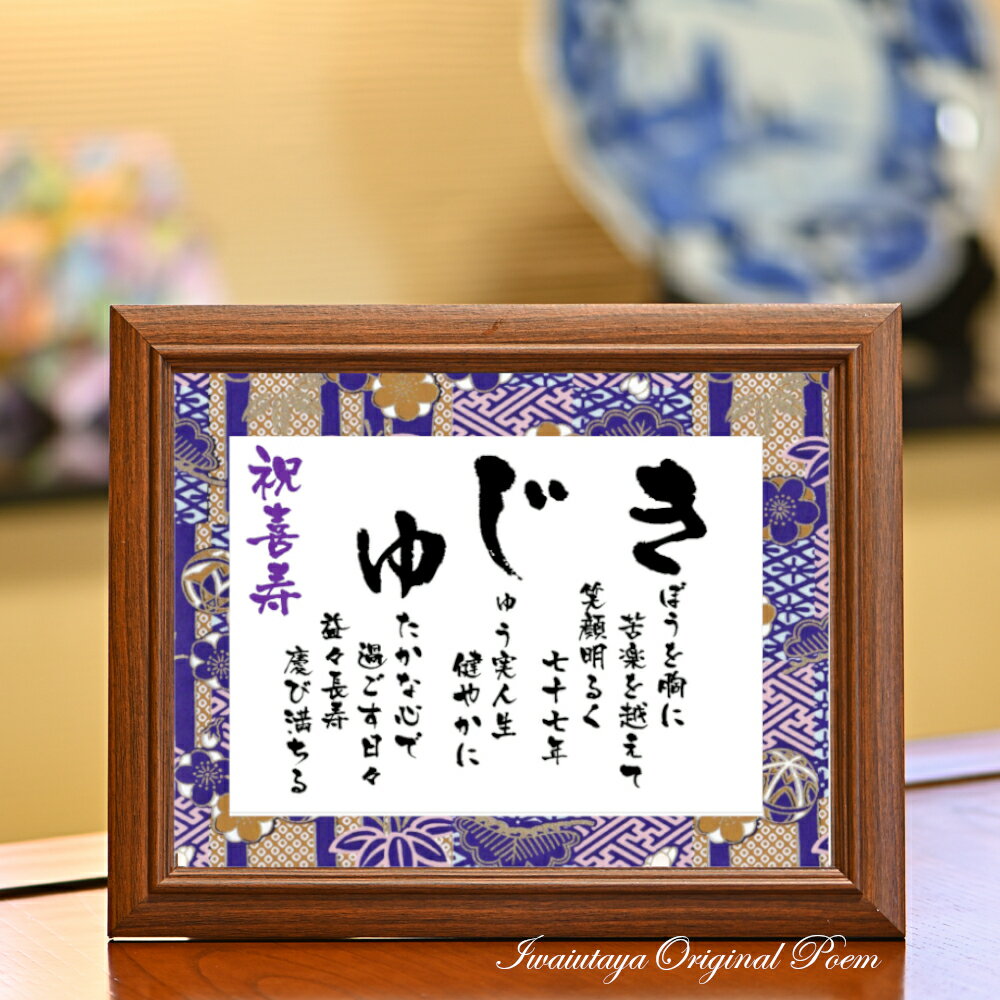 きぼうを胸に
苦楽を越えて
笑顔明るく
七十七年
じゆう実人生
健やかに
ゆたかな心で
過ごす日々
益々長寿
慶び満ちる
祝喜寿
Iwaiutaya Original Poem